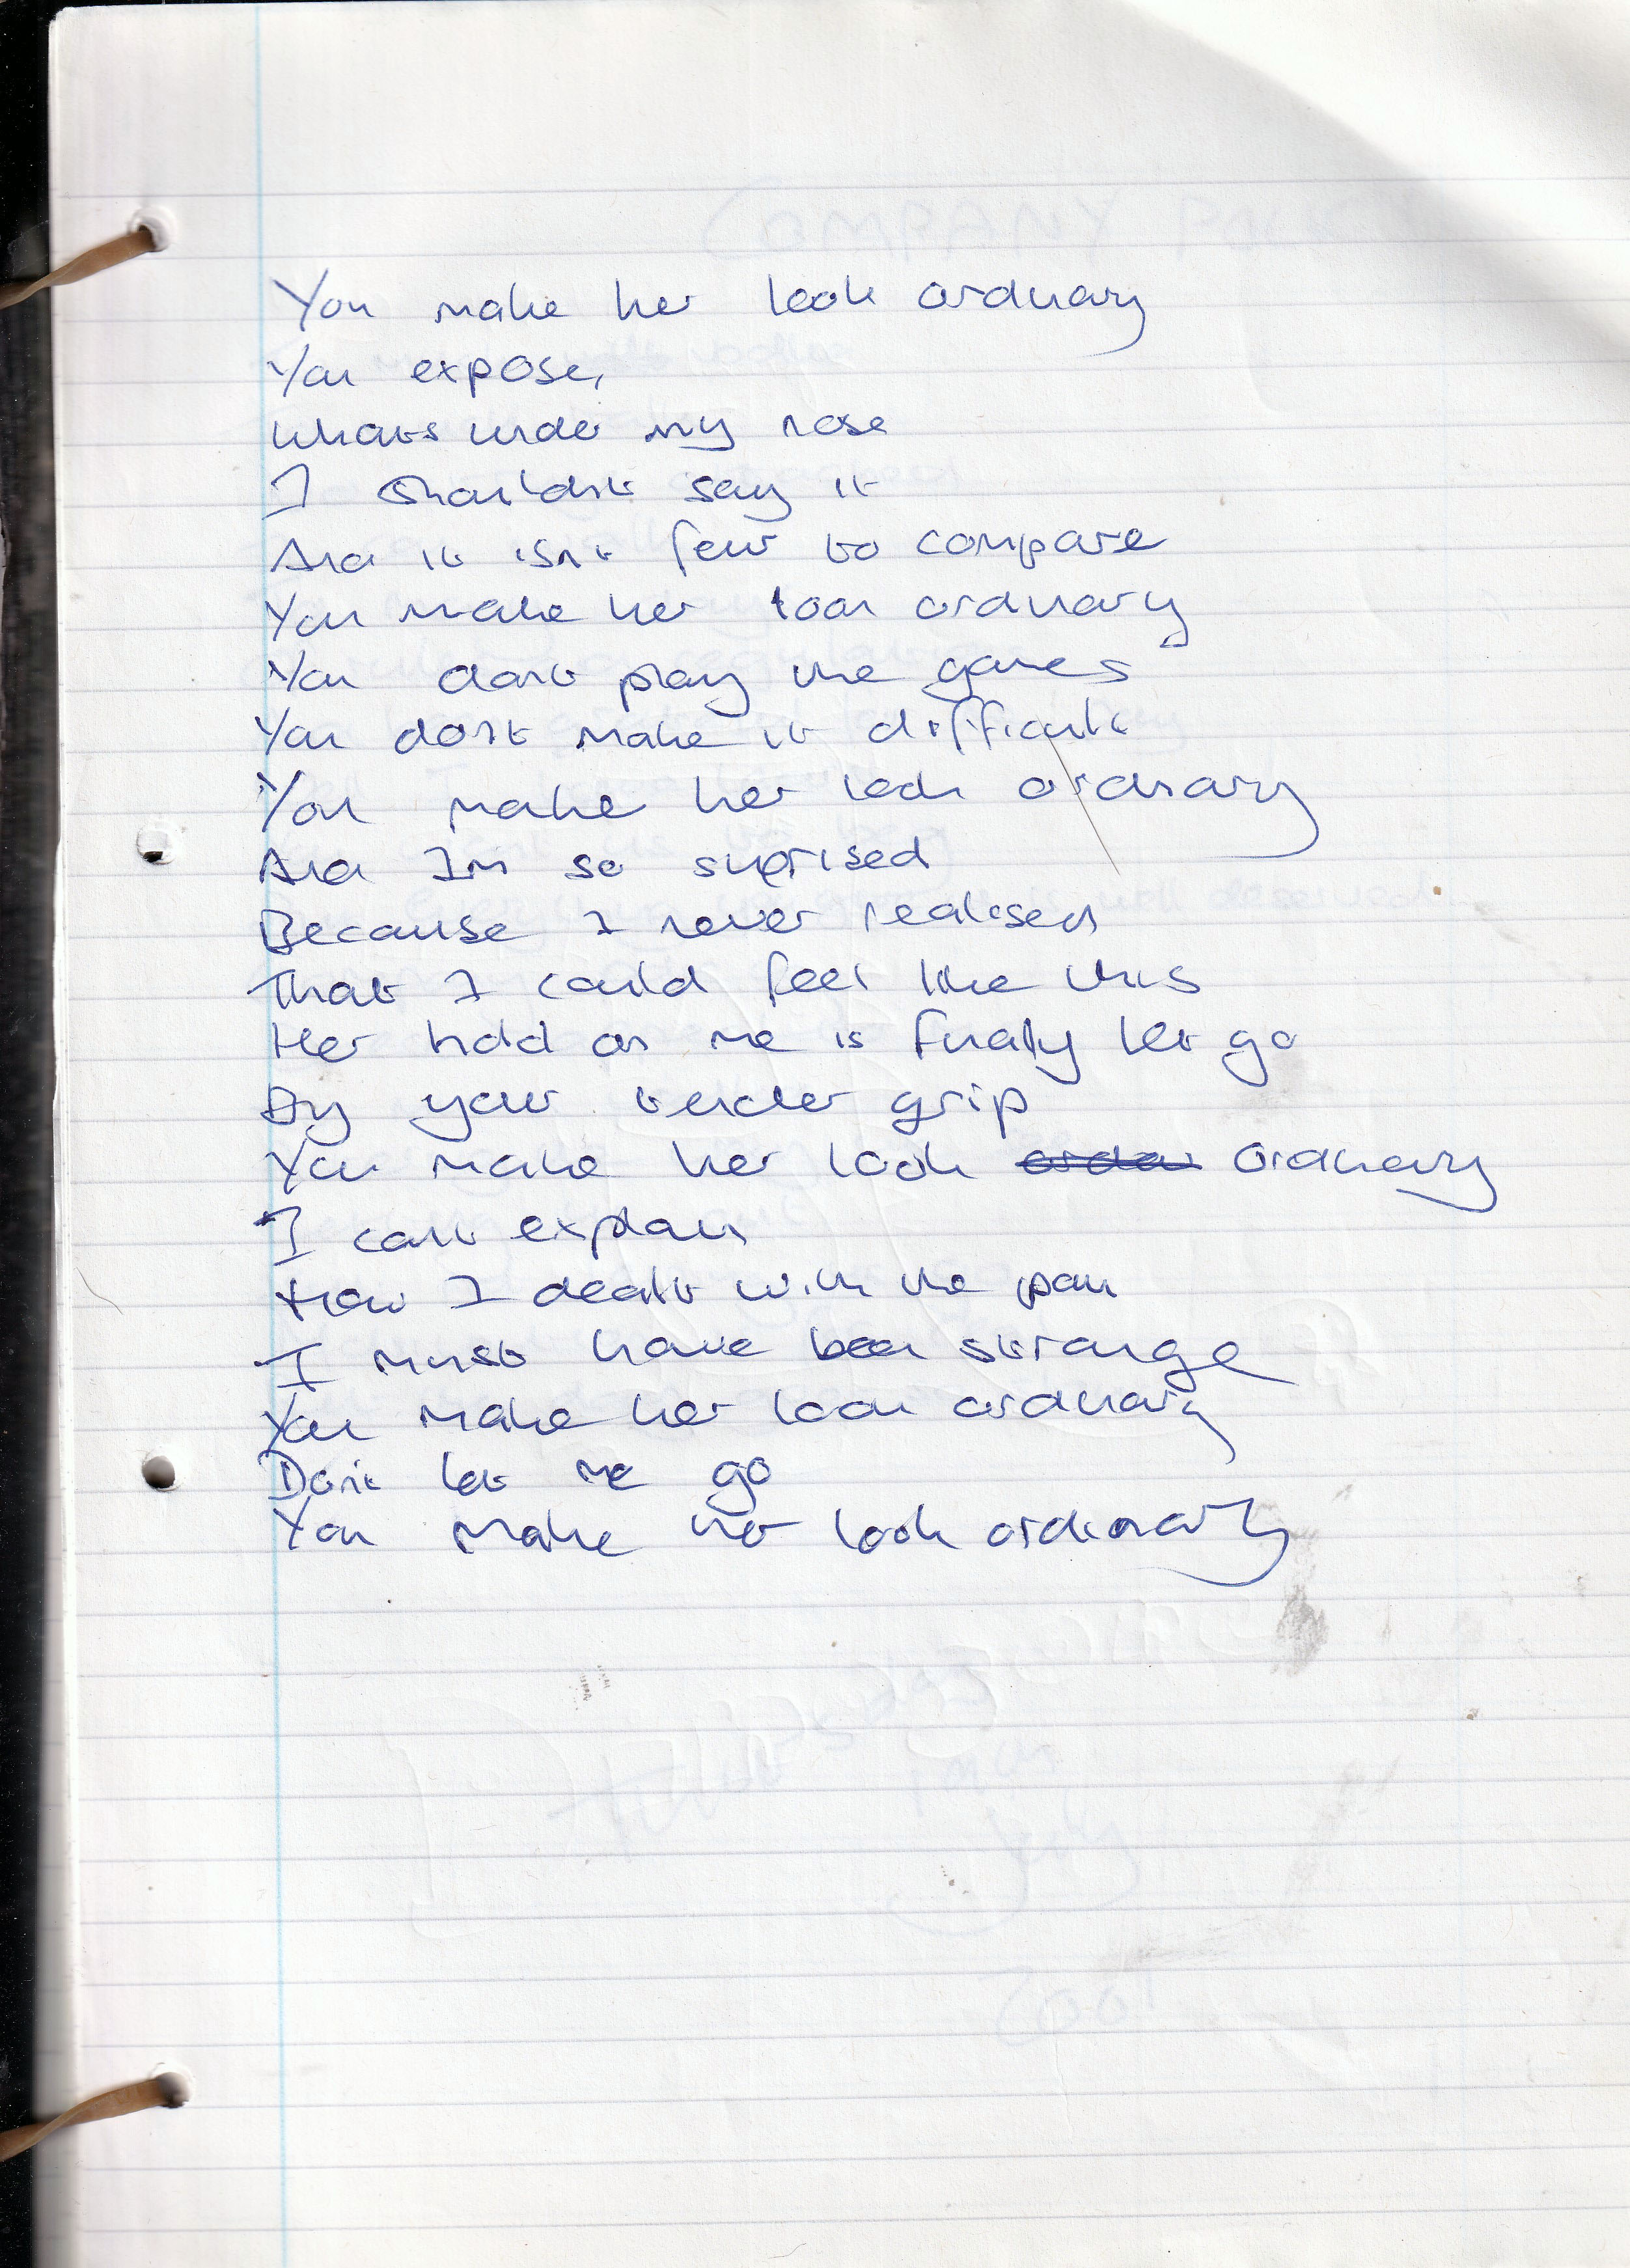 You make her look ordinary
You expose,
Whats under my nose
I shouldnt say it
And it isnt fair to compare
You make her look ordinary
You dont play the games
You dont make it difficult
You make her look ordinary
And Im so suprised
Because I never realised
That I could feel like this
Her hold on me is finally let go
By your tender grip
You make her look ordinary
I cant explain
How I dealt with the pain
I must have been strange
You make her look ordinary
Dont let me go
You make her look ordinary